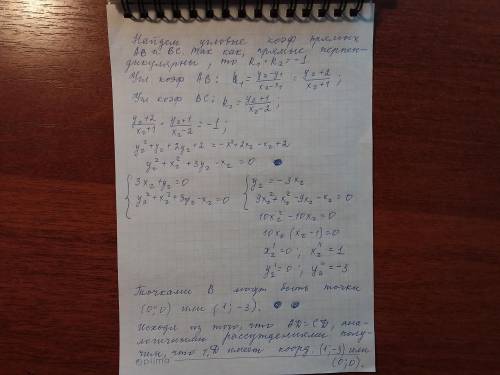 Найдем угловые коэф прямых
AB и BC. Так как, прямые перпен-
дикулярны, то k₁ * k₂ = -1
Угл коэф AB: k₁ = (y₂-y₁)/(x₂-x₁) = (y₂+2)/(x₂+1);
Угл коэф BC: k₂ = (y₂+1)/(x₂-2);
(y₂+2)/(x₂+1) * (y₂+1)/(x₂-2) = -1;
y₂²+y₂+2y₂+2 = -x²+2x₂-x₂+2
y₂²+x₂²+3y₂-x₂ = 0
{ 3x₂+y₂=0
{ y₂²+x₂²+3y₂-x₂=0
{ y₂=-3x₂
{ 9x₂²+x₂²-9x₂-x₂=0
10x₂²-10x₂=0
10x₂(x₂-1)=0
x₂'=0; x₂''=1
y₂'=0; y₂''=-3
Точками B могут быть точки
(0;0) или (1;-3).
Исходя из того, что AD=CD, ана-
логичными рассуждениями полу-
чим, что т.D имеет коорд. (1;-3) или
(0;0).